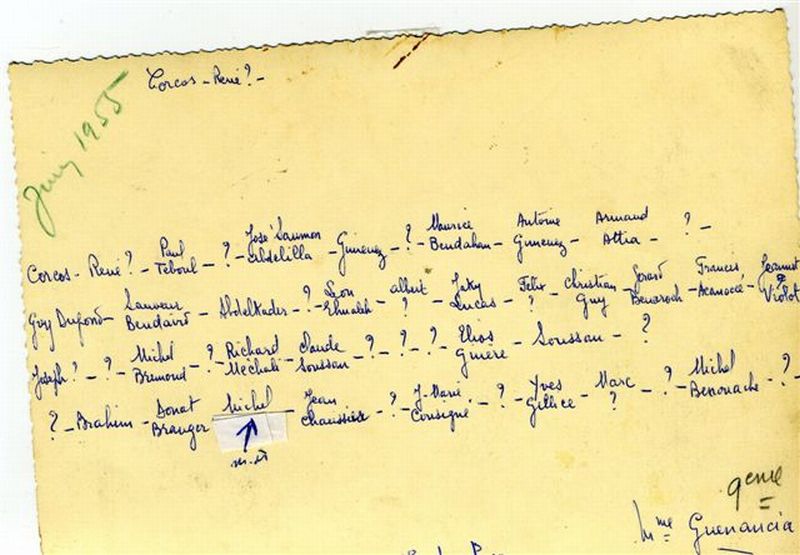 Corcos - René? -
Juin 1955
Corcos - René? - Paul Teboul - ? - José Saumon Abdelilla - Gimenez - ? - Maurice Bendahan - Antoine Gimenez - Armand Attia - ? -
Guy Dufond - Sauveur Bendavid - Abdelkader - ? - Léon Elmaleh - Albert ? - Jaky Lucas - Félix ? - Christian Guy - Gérard Benaroch - Francis - Jeannot Violot
Joseph? - ? - Michel Bremond - ? - Richard Mechali - Claude Soussan - ? - ? - ? - Elios Ginere - Soussan - ?
? - Brahim - Donat Branger - Michel - Jean Chaussière - ? - J. Marie Consigne - ? - Yves Gillice - Marc ? - ? - Michel Benouache - ? -
9eme
Mme Guenancia